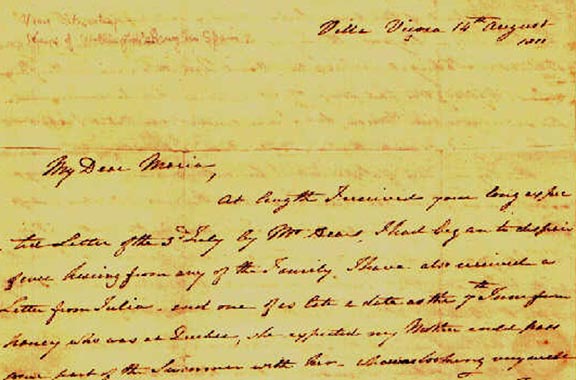 Villa Viçosa 14th August
1811
My Dear Maria,
At length I received your long expec
ted Letter of the 3d July by Mr. , I had began to despair
of ever hearing from any of the Family. I have also received a
Letter from Julia and one of as late a date as the 7th June from
who was at Dundee, she expected my Mother would pass
some part of the Summer with her. looking very well